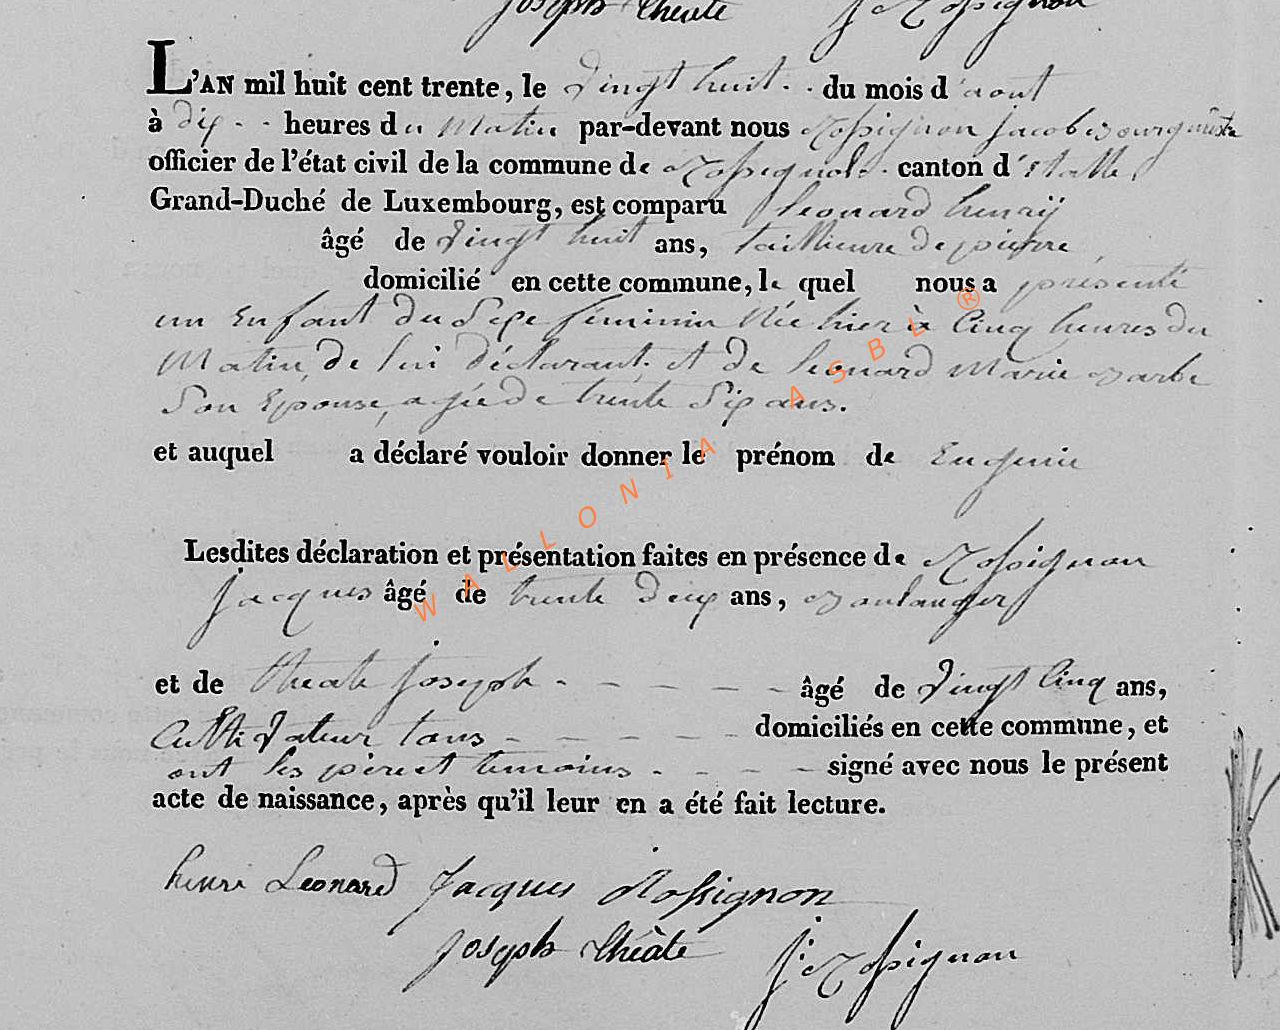 Joseph théate J Rossignon
L'AN mil huit cent trente, le vingt huit du mois d'aout
à dix heures du Matin par-devant nous Rossignon jacob bourgmestre
officier de l'état civil de la commune de Rossignol canton d'Etalle,
Grand-Duché de Luxembourg, est comparu Leonard henrÿ
âgé de vingt huit ans, taillieure de pierre
domicilié en cette commune, le quel nous a présenté
un Enfant du Sexe féminin Née hier à Cinq heures du
Matin, de lui déclarant et de Leonard Marie barbe
Son Epouse, agée de trente Six ans.
et auquel a déclaré vouloir donner le prénom de Eugenie
Lesdites déclaration et présentation faites en présence de Rossignon
Jacques âgé de trente deux ans, boulanger
et de théate Joseph - - - - - âgé de vingt Cinq ans,
Cultivateur tous - - - - - domiciliés en cette commune, et
ont les père et temoins - - - - signé avec nous le présent
acte de naissance, après qu'il leur en a été fait lecture.
henri Leonard Jacques Rossignon
Joseph théate J: Rossignon
WALLONIA ASBL ®